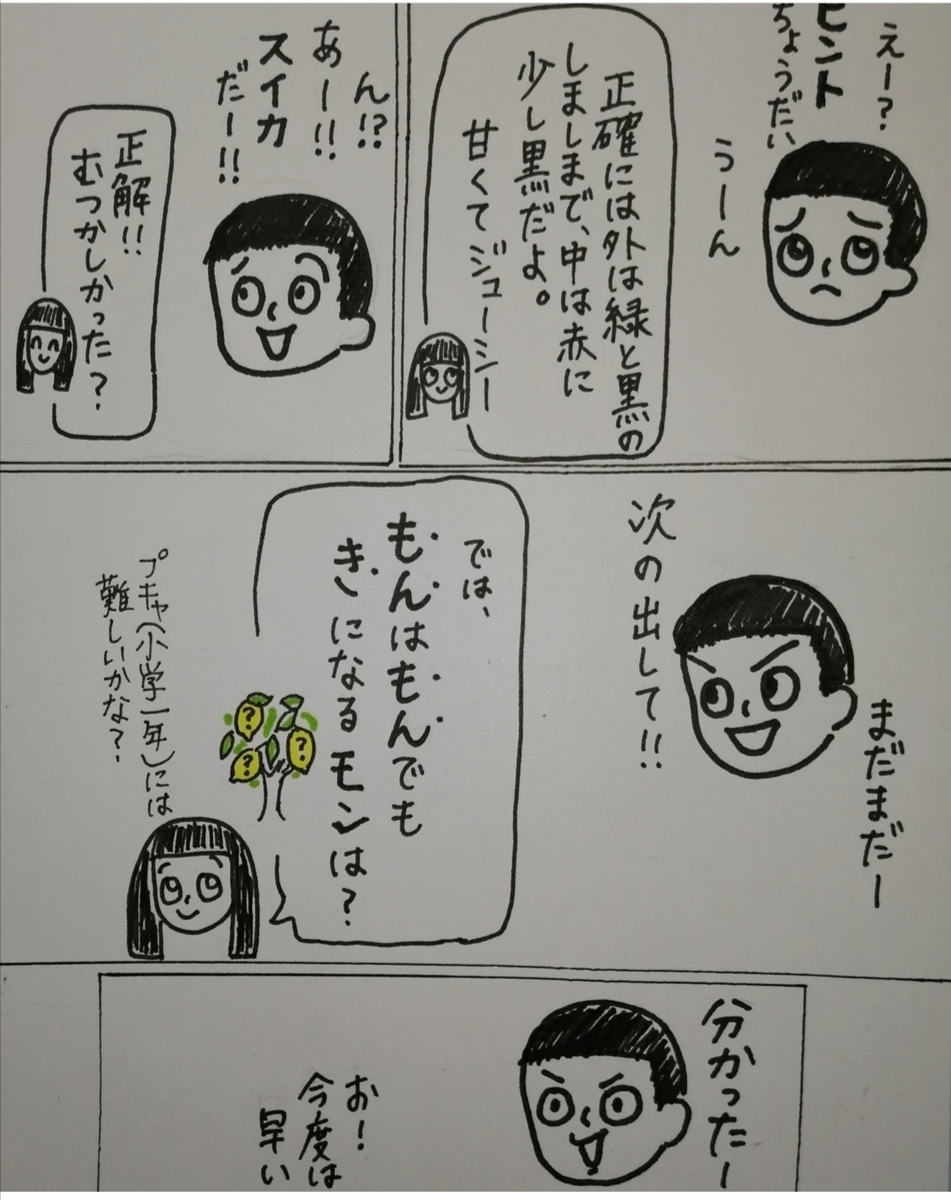 えー?
ヒント
ちょうだい
うーん
正確には外は緑と黒の
しましまで、中は赤に
少し黒だよ。
甘くてジューシー
ん!?
あー!!
スイカ
だー!!
正解!!
むつかしかった?
まだまだー
次の出して!!
では、
もんはもんでも
きになるモンは?
?
?
?
プキャ(小学一年)には
難しいかな?
分かったー
お!
今度は
早い